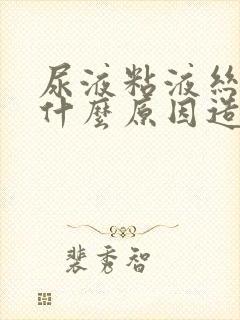 尿液粘液絲
什麼原因造
裴秀智